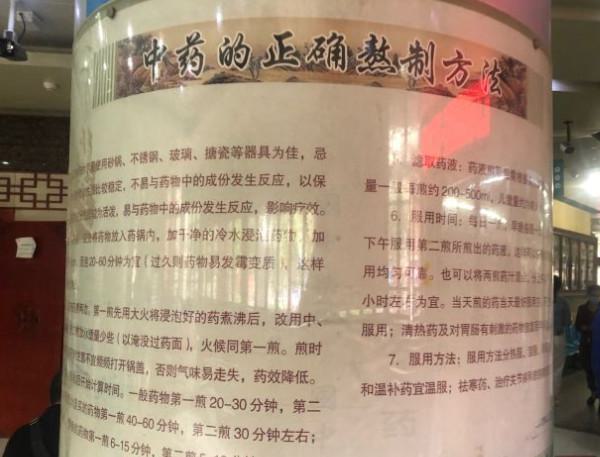 中药的正确熬制方法
使用砂锅、不锈钢、玻璃、搪瓷等器具为佳，忌
比较稳定，不易与药物中的成份发生反应，以保
为活发，易与药物中的成份发生反应，影响疗效。
将药物放入药锅内，加干净的冷水浸泡药物，加
20-60分钟为宜（过久则药物易发霉变质），这样
第一煎先用大火将浸泡好的药煮沸后，改用中、
量少些（以淹没过药面），火候同第一煎。煎时
不宜频频打开锅盖，否则气味易走失，药效降低。
开始计算时间。一般药物第一煎20-30分钟，第二
药物第一煎40-60分钟，第二煎30分钟左右；
药物第一煎6-15分钟，第二煎
滤取药液：药液
量一般每煎约200-500ml，儿童量
6、服用时间：每日一
下午服用第二煎所煎出的药液。
用均匀可靠。也可以将两煎药汁混合
小时左右为宜。当天煎的药当天最好服
服用；清热药及对胃肠有刺激的药物
7、服用方法：服用方法分热服、温服
和温补药宜温服；祛寒药、治疗关节